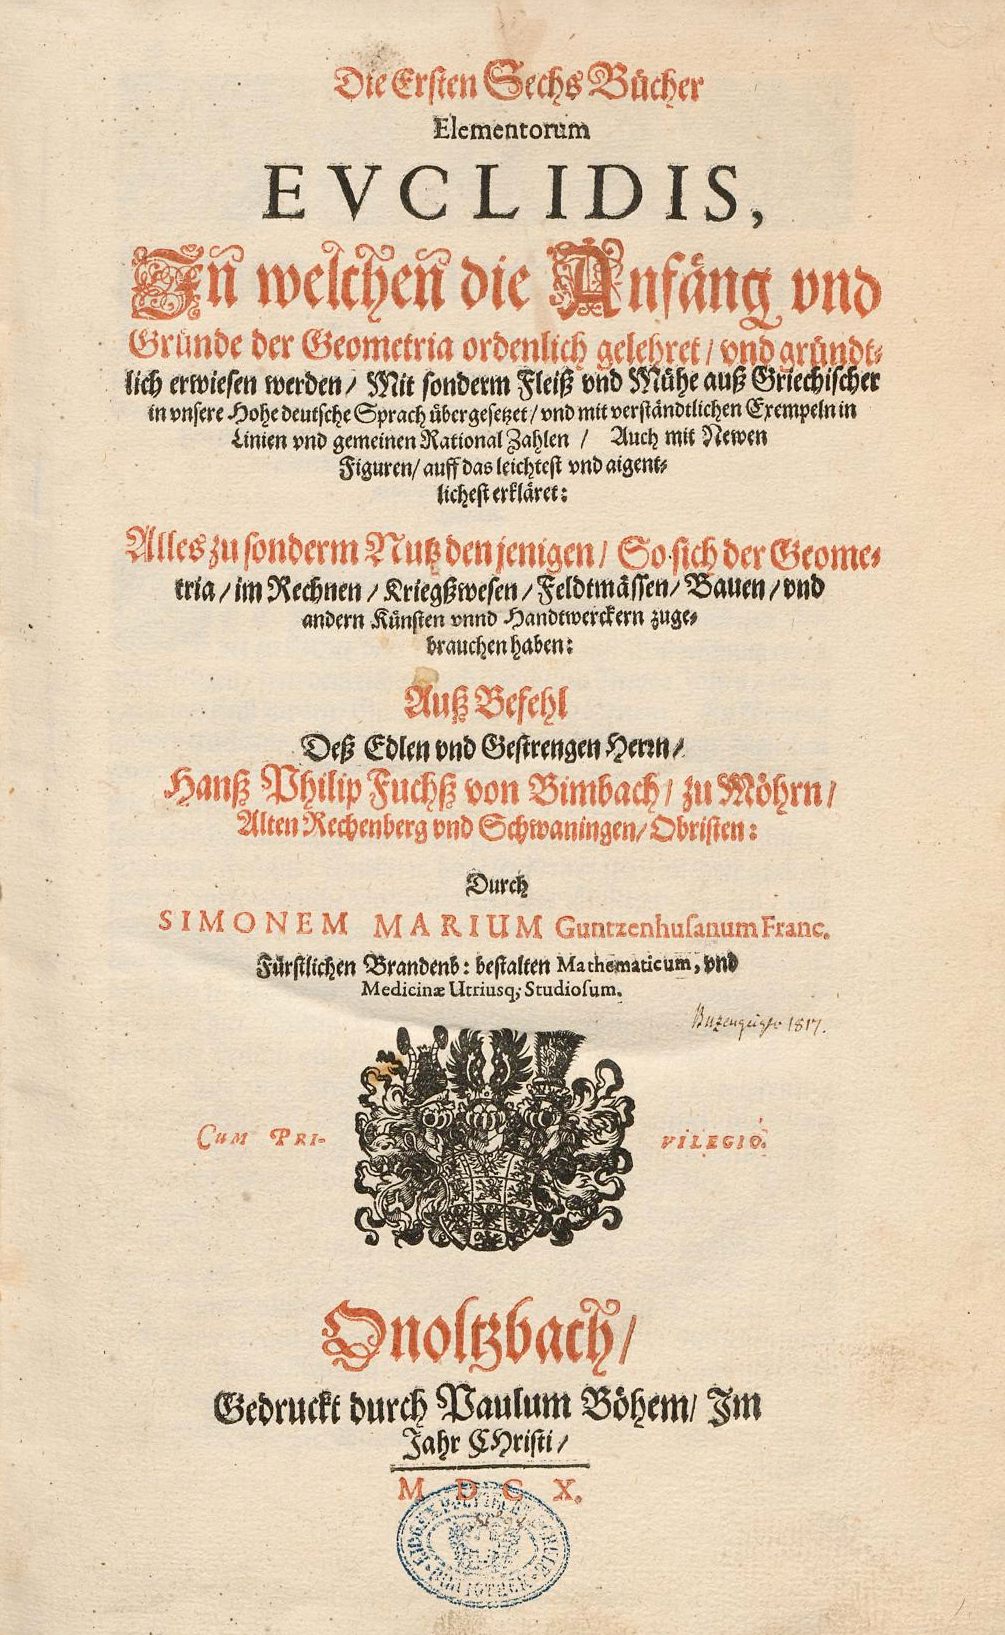 Die Ersten Sechs Bücher
Elementorum
EVCLIDIS,
In̄ welchen̄ die Anfäng vnd
Gründe der Geometria ordenlich gelehret / vnd gründt⸗
lich erwiesen werden / Mit sonderm Fleiß vnd Mühe auß Griechischer
in vnsere Hohe deutsche Sprach übergesetzet / vnd mit verständtlichen Exempeln in
Linien vnd gemeinen Rational Zahlen / Auch mit Newen
Figuren / auff das leichtest vnd aigent⸗
lichest erkläret:
Alles zu sonderm Nutz den jenigen / So sich der Geome⸗
tria / im Rechnen / Kriegßwesen / Feldtmässen / Bauen / vnd
andern Künsten vnnd Handtwerckern zuge⸗
brauchen haben:
Auß Befehl
Deß Edlen vnd Gestrengen Herrn /
Hanß Philip Fuchß von Bimbach / zu Möhrn /
Alten Rechenberg vnd Schwaningen / Obristen:
Durch
SIMONEM MARIUM Guntzenhusanum Franc.
Fürstlichen Brandenb: bestalten Mathematicum, vnd
Medicinæ Utriusq; Studiosum.
1817.
CUM PRI- VILEGIO.
Onoltzbach /
Gedruckt durch Paulum Böhem / Im
Jahr CHristi /
M D C X.